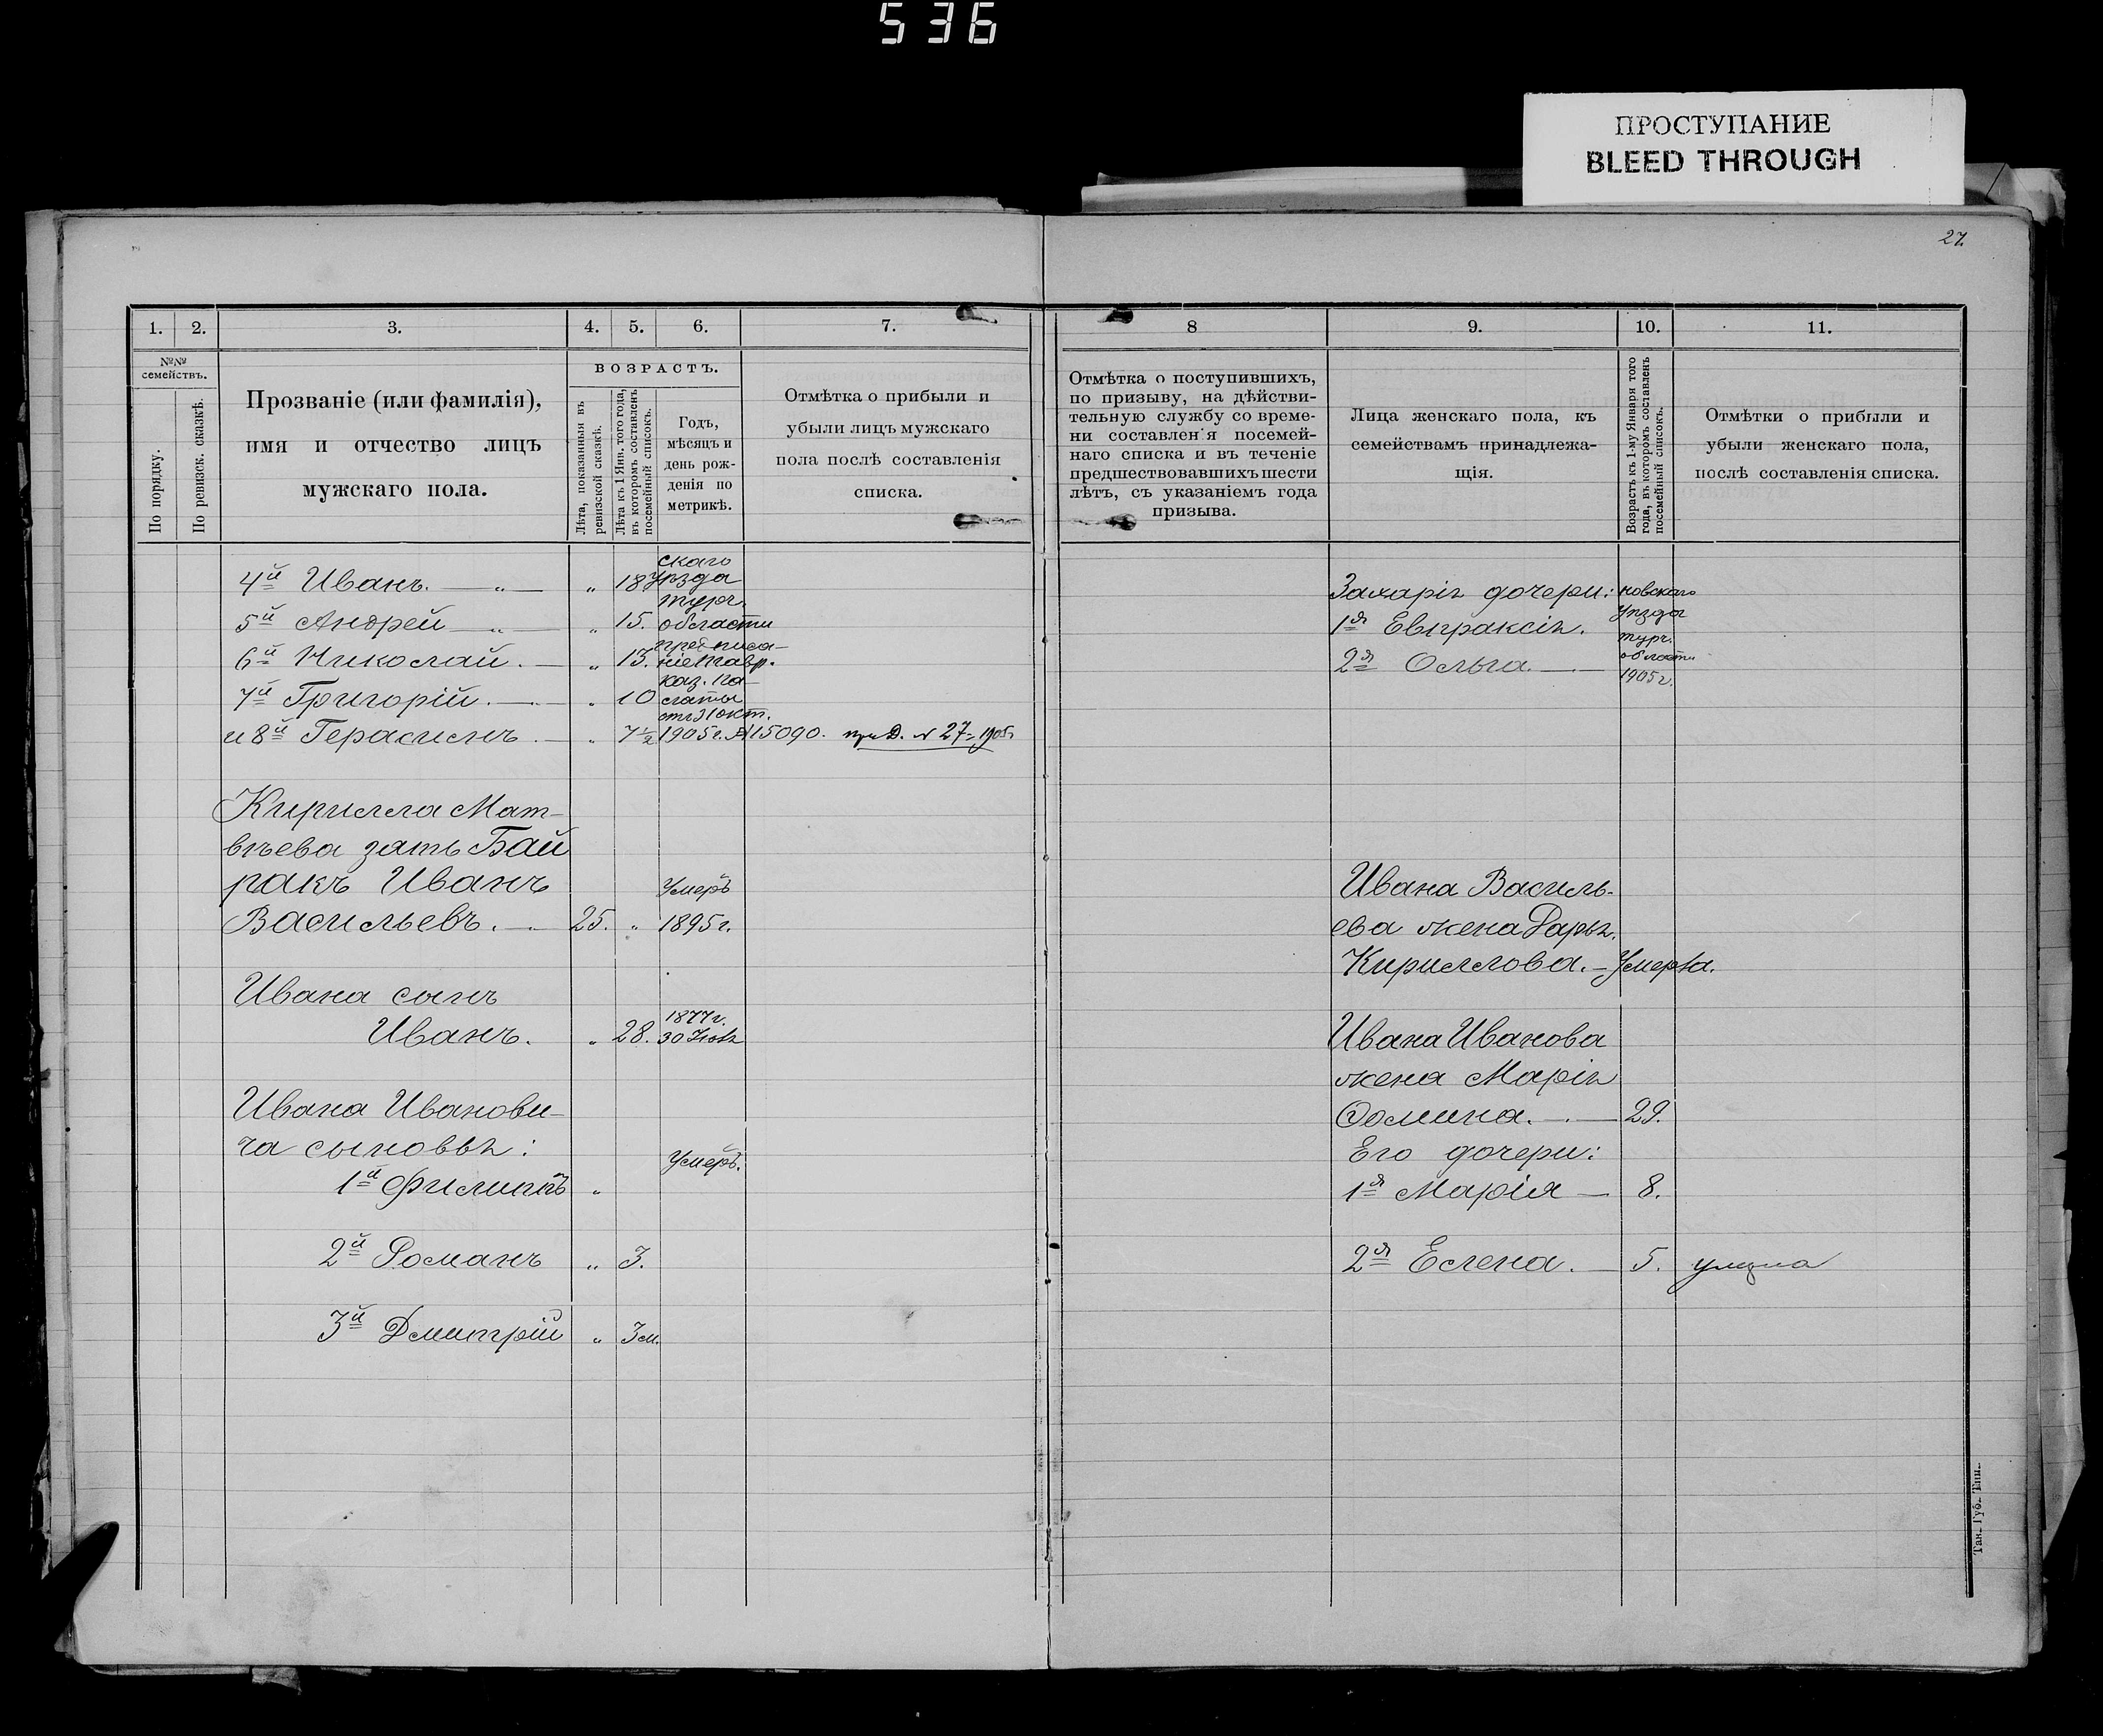 536
ПРОСТУПАНИЕ
BLEED THROUGH
27.
1.
2.
3.
4.
5.
6.
7.
№№ семействъ.
По порядку.
По ревизск. сказкѣ.
Прозваніе (или фамилія),
имя и отчество лицъ
мужскаго пола.
ВОЗРАСТЪ.
Лѣта, показанныя въ
ревизской сказкѣ.
Лѣта къ 1 Янв. того года,
въ которомъ составленъ
посемейный списокъ.
Годъ,
мѣсяцъ и
день рож-
денія по
метрикѣ.
Отмѣтка о прибыли и
убыли лицъ мужскаго
пола послѣ составленія
списка.
скаго
4й Иванъ. — „ — „ 18 уѣзда
турч.
5й Андрей — „ — „ 15. области
предписа-
6й Николай. — „ 13. ніе Тавр.
каз. па-
7й Григорій. — „ 10 латы
отъ 31 окт.
и 8й Герасимъ — „ 7½ 1905 г. № 15090. при Д. № 27 - 1905г
Кирилла Мат-
вѣева зять Бай
ракъ Иванъ Умеръ
Васильевъ. — 25. „ 1895 г.
Ивана сынъ
1877 г.
Иванъ. „ 28. 30 Іюля
Ивана Иванови-
ча сыновья:
Умеръ.
1й Филиппъ „
2й Романъ „ 3.
3й Дмитрій „ 3 м.
8
9.
10.
11.
Отмѣтка о поступившихъ,
по призыву, на дѣйстви-
тельную службу со време-
ни составленія посемей-
наго списка и въ теченіе
предшествовавшихъ шести
лѣтъ, съ указаніемъ года
призыва.
Лица женскаго пола, къ
семействамъ принадлежа-
щія.
Возрастъ къ 1-му Января того
года, въ которомъ составленъ
посемейный списокъ.
Отмѣтки о прибыли и
убыли женскаго пола,
послѣ составленія списка.
Захарія дочери: новскаго
уѣзда
1я Евпраксія.
турч.
2я Ольга. — области
1905 г.
Ивана Василь-
ева жена Дарья
Кириллова. — Умерла.
Ивана Иванова
жена Марія
Ѳомина. — 29.
Его дочери:
1я Марія — 8.
2я Елена. — 5.
Тав. Губ. Тип.